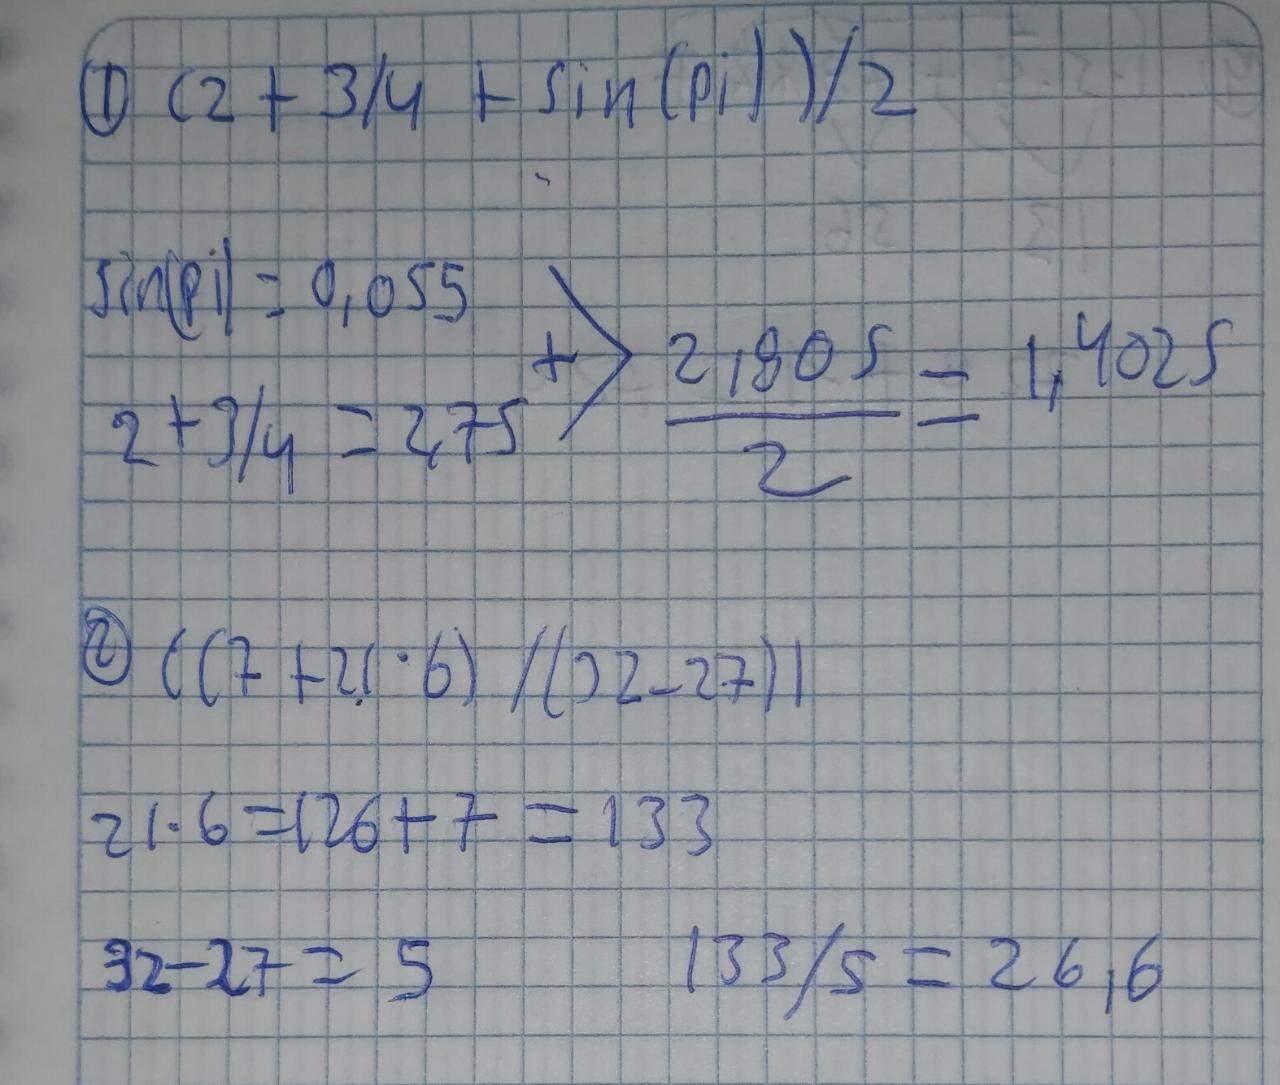 ① (2 + 3/4 + sin(pi))/2
sin(pi) = 0,055
+
2,805 = 1,4025
2
2 + 3/4 = 2,75
② ((7 + 21 · 6) /(32 - 27))
21 · 6 = 126 + 7 = 133
32 - 27 = 5 133/5 = 26,6